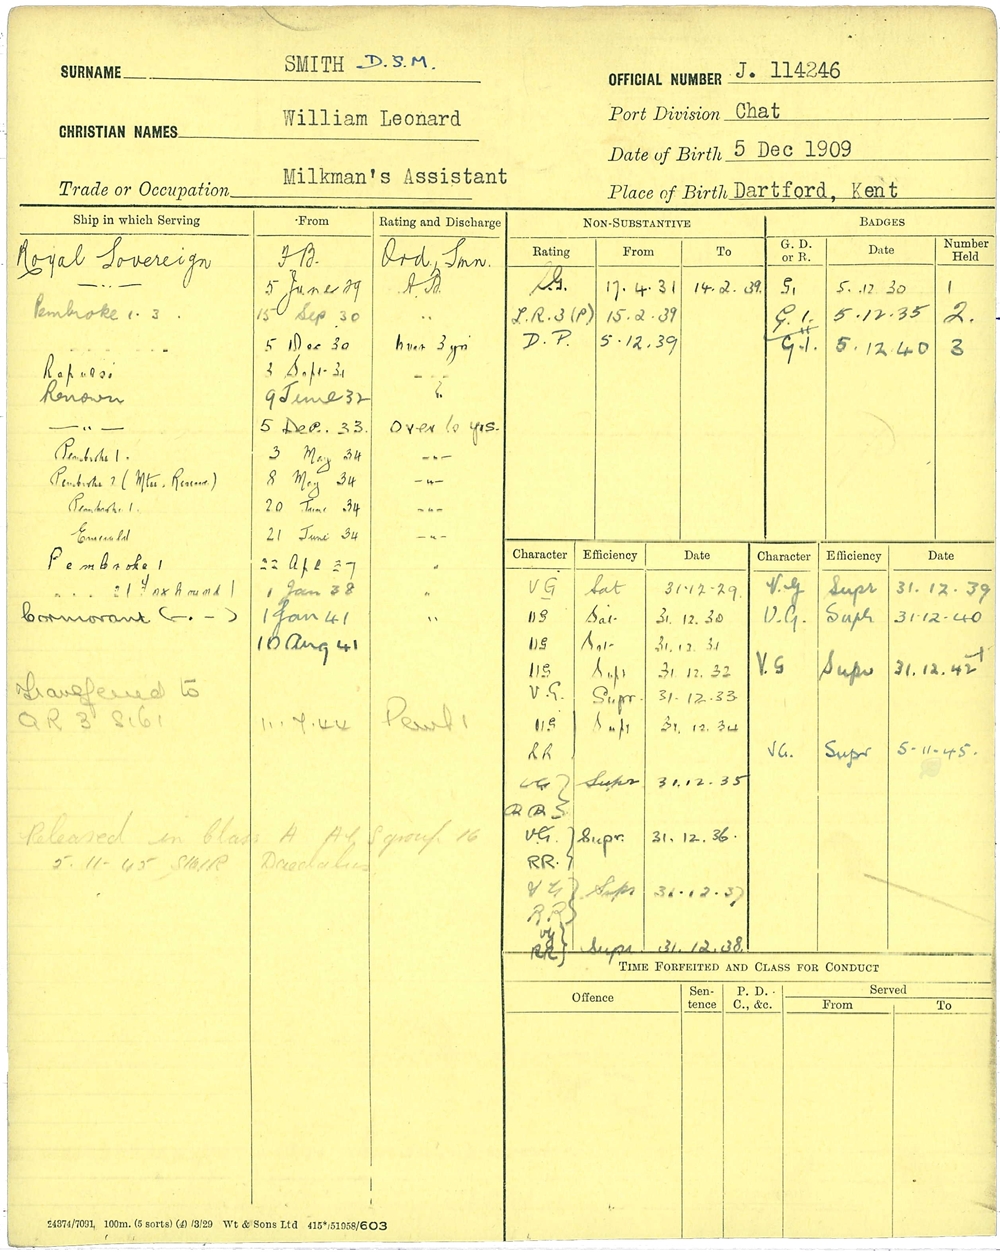 SURNAME SMITH D.S.M.
OFFICIAL NUMBER J. 114246
CHRISTIAN NAMES William Leonard
Port Division Chat
Date of Birth 5 Dec 1909
Trade or Occupation Milkman's Assistant
Place of Birth Dartford, Kent
Ship in which Serving From Rating and Discharge
Royal Sovereign F.B. Ord. Smn.
—"— 5 June 29 A.B.
Pembroke 1. 3. 15 Sep 30 "
" 5 Dec 30 over 3 yrs
Repulse 3 Sept 31 "
Renown 9 June 32 "
—"— 5 Dec. 33. Over 6 yrs.
Pembroke 1. 3 May 34 —"—
Pembroke 2 8 May 34 —"—
Pembroke 1. 20 June 34 —"—
Emerald 21 June 34 —"—
Pembroke 1 22 Apl 37 "
1 Jan 38 "
Cormorant (—.—) 1 Jan 41 "
10 Aug 41
Transferred to
11.7.44
Released in Class A group 16
5.11.45 Daedalus
NON-SUBSTANTIVE
Rating From To
S.G. 17.4.31 14.2.39.
L.R.3(P) 15.2.39
D.P. 5.12.39
BADGES
G. D. or R. Date Number Held
G1 5.12.30 1
G.1. 5.12.35 2.
G.1. 5.12.40 3
Character Efficiency Date
VG Sat 31-12-29.
VG Sat. 31.12.30
VG Sat. 31.12.31
VG Supr 31.12.32
V.G. Supr. 31-12-33
VG Supr 31.12.34
RR
VG } Supr 31.12.35
V.G. } Supr. 31.12.36.
RR. }
VG } Supr 31.12.37
RR }
VG } Supr. 31.12.38.
RR }
Character Efficiency Date
V.G Supr 31.12.39
V.G. Supr 31-12-40
V.G Supr 31.12.42
VG. Supr 5-11-45.
TIME FORFEITED AND CLASS FOR CONDUCT
Offence Sen-tence P. D. C., &c. Served
From To
24374/7091, 100m. (5 sorts) (4) /3/29 Wt & Sons Ltd 415*/51958/603